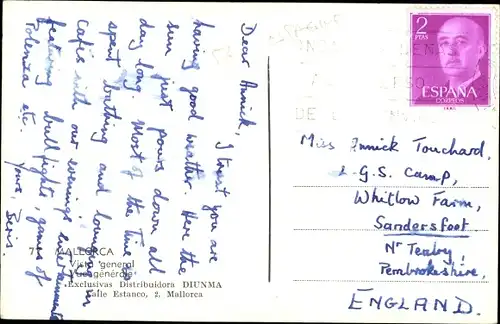 Dear Annick,
I trust you are
having good weather. Here the
sun just pours down all
day long. Most of the time is
spent bathing and lounging in
Cafés with our evenings' entertainments
featuring bull fights, games of
Polenza etc.
Yours, Beris.
MALLORCA
Vista general
Vue générale
Exclusivas Distribuidora DIUNMA
Calle Estanco, 2. Mallorca
2
PTAS
ESPAÑA
CORREOS
Miss Annick Touchard,
2-G.S. Camp,
Whitlow Farm,
Sandersfoot
Nr Tenby,
Pembrokeshire,
ENGLAND.